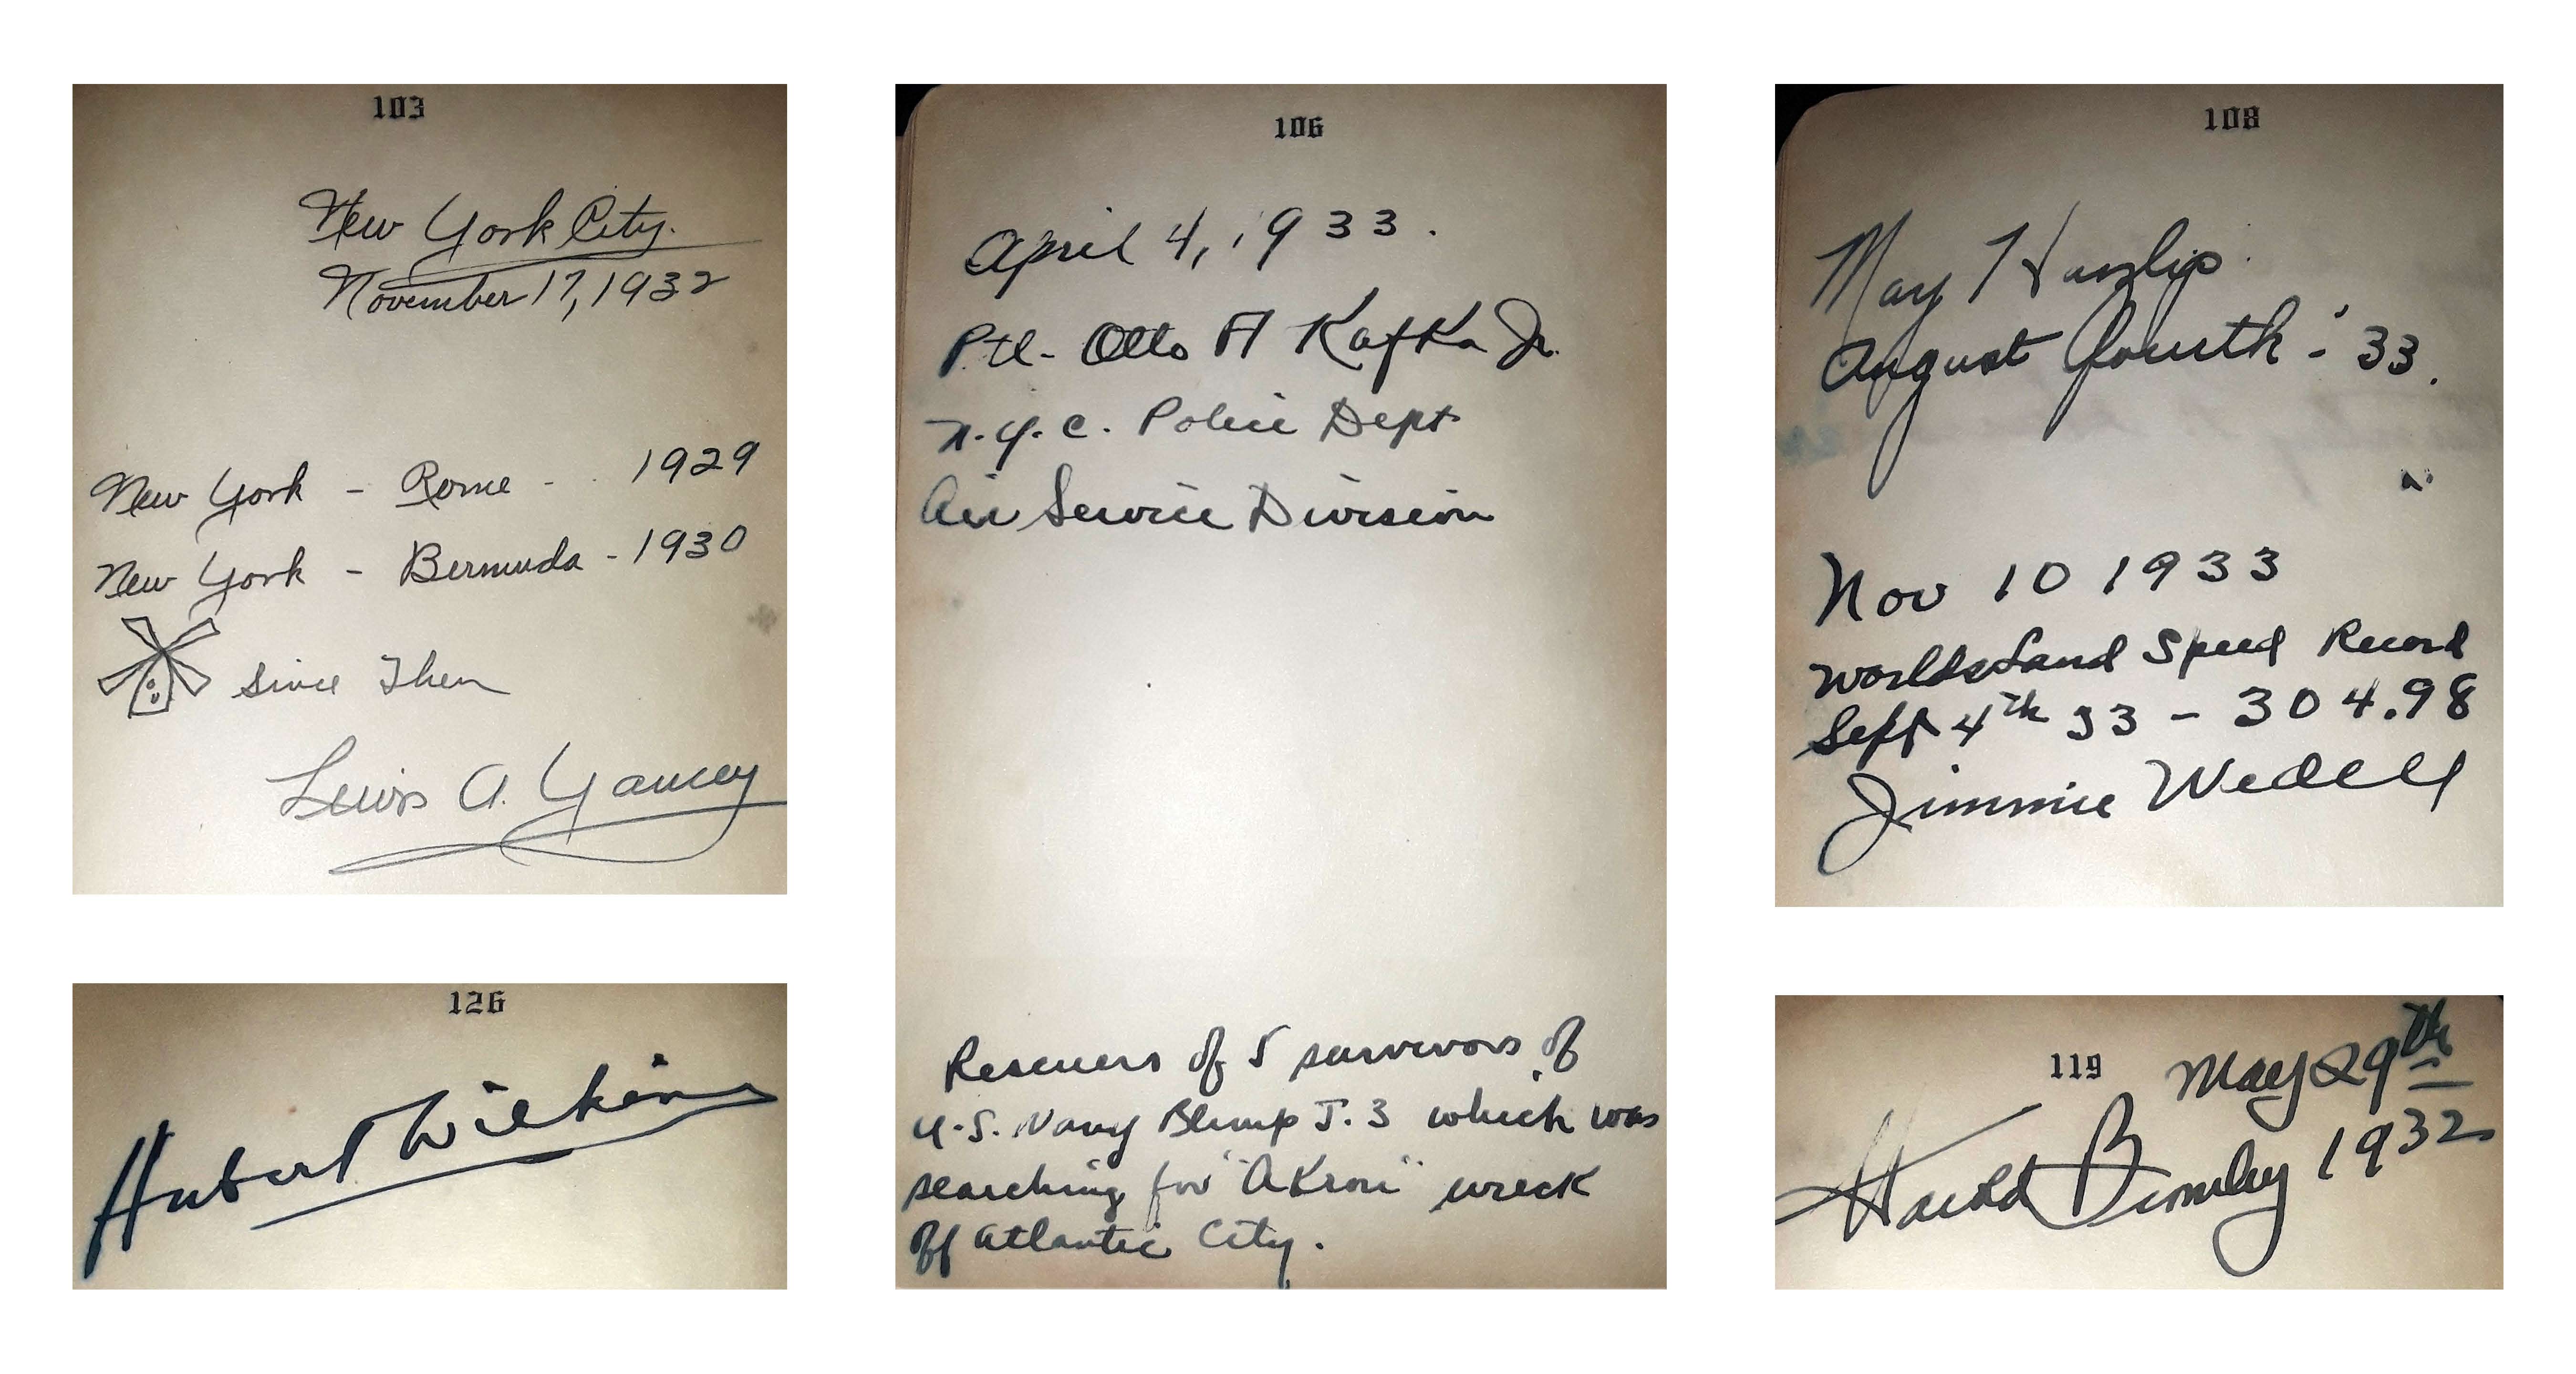 103
New York City.
November 17, 1932
New York - Rome - 1929
New York - Bermuda - 1930
Since Then
Lewis A. Yancey
126
Hubert Wilkins
106
April 4, 1933.
Ptl- Otto A Kafka Jr.
N.Y.C. Police Dept
Air Service Division
Rescuers of 5 survivors of
U.S. Navy Blimp J.3 which was
searching for "Akron" wreck
off Atlantic City.
108
May Haizlip
August Fourth - '33.
Nov 10 1933
Worlds Land Speed Record
Sept 4th 33 - 304.98
Jimmie Wedell
119
May 29th
Harold Bromley 1932